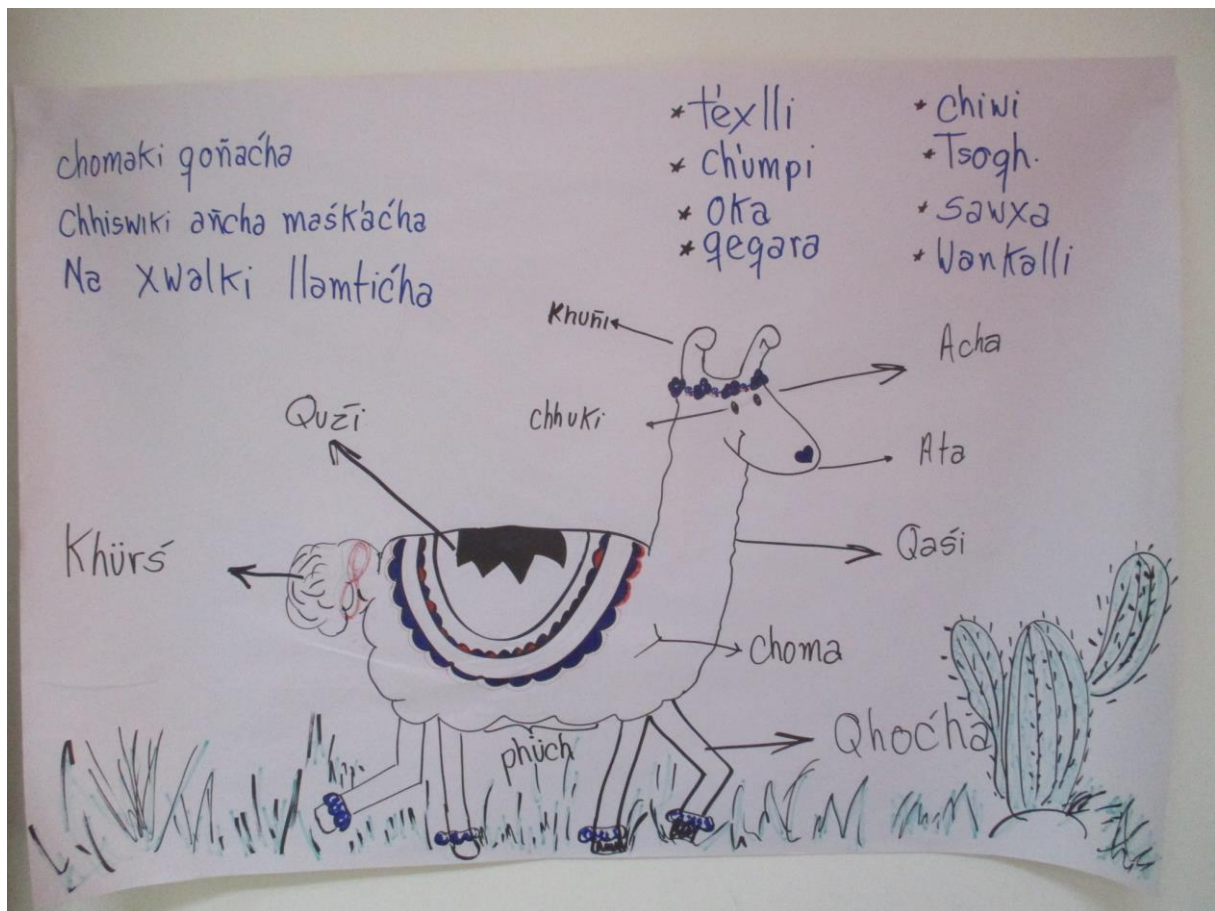 chomaki qoñaćha
Chhiswki añcha maśk'aćha
Na xwalki llamtićha
* t'exlli
* Ch'umpi
* oka
* qeqara
* chiwi
* Tsoqh.
* sawxa
* Wankalli
Khuñi
Acha
Quzi
chhuki
Ata
Khürś
Qaśi
choma
Qhoćha
phüch